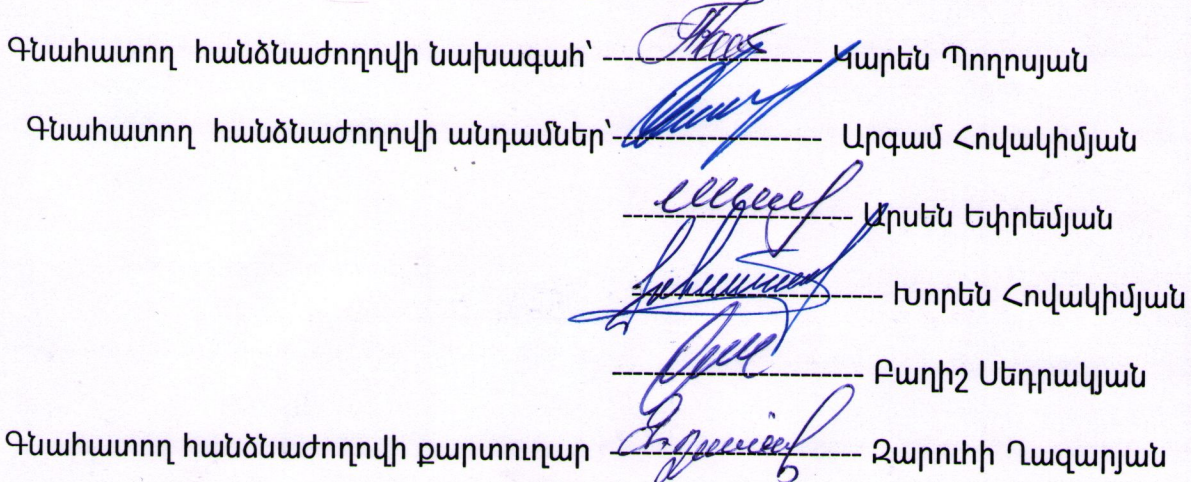 Գնահատող հանձնաժողովի նախագահ՝ ---------------------- Կարեն Պողոսյան
Գնահատող հանձնաժողովի անդամներ՝--------------------- Արգամ Հովակիմյան
----------------------- Արսեն Եփրեմյան
------------------------- Խորեն Հովակիմյան
------------------------- Բաղիշ Սեդրակյան
Գնահատող հանձնաժողովի քարտուղար ------------------------- Զարուհի Ղազարյան